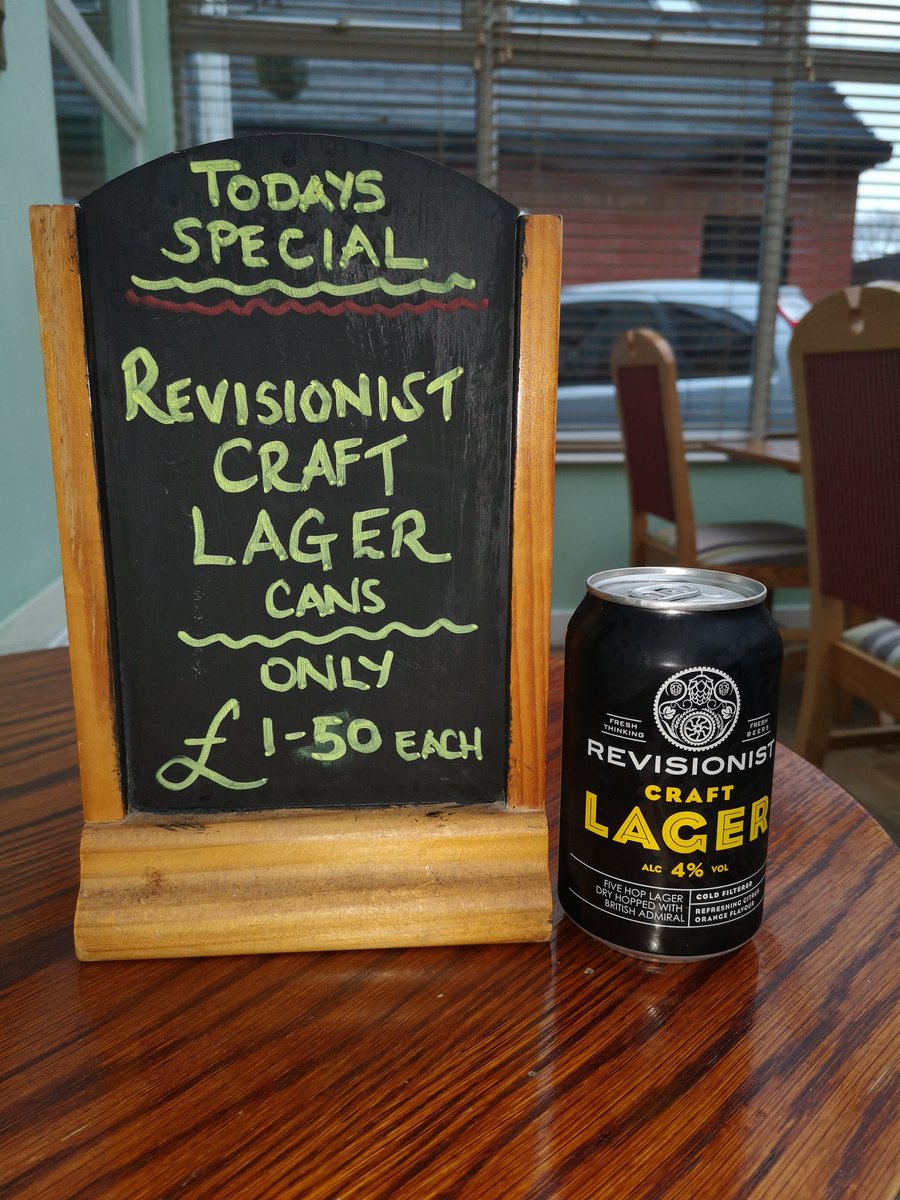 TODAYS
SPECIAL
REVISIONIST
CRAFT
LAGER
CANS
ONLY
£1-50 EACH
FRESH
THINKING
FRESH
BEERS
REVISIONIST
CRAFT
LAGER
ALC 4% VOL
FIVE HOP LAGER
DRY HOPPED WITH
BRITISH ADMIRAL
COLD FILTERED
REFRESHING CITRUS
ORANGE FLAVOUR